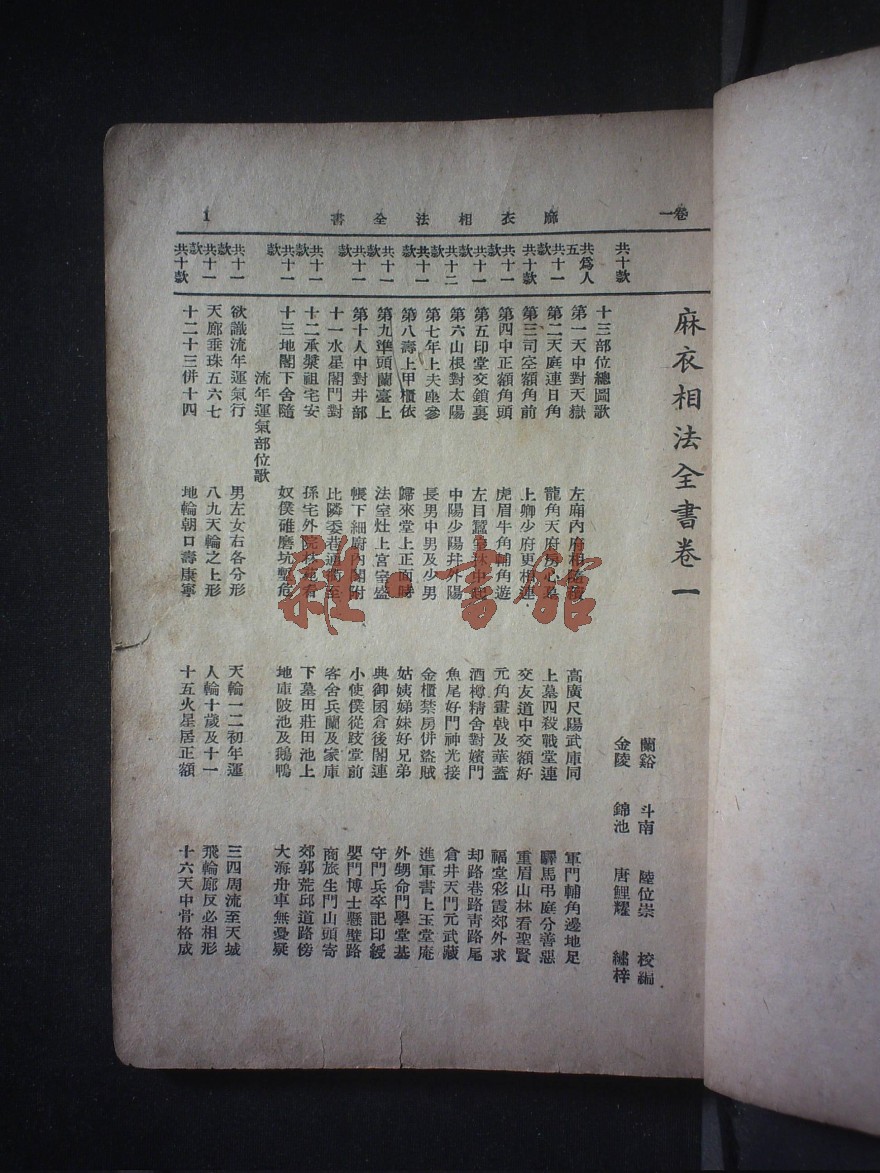 卷一
麻衣相法全書
1
共十款
共爲人五
共十一款
共十款
共十一款
共十一款
共十二款
共十一款
共十一款
共十一款
共十一款
共十一款
共十一款
共十一款
共十款
麻衣相法全書卷一
蘭谿 斗南 陸位崇 校編
金陵 錦池 唐鯉耀 繡梓
十三部位總圖歌
第一天中對天嶽 左廟內府相隨 高廣尺陽武庫同 軍門輔角邊地足
第二天庭連日角 龍角天府房心墓 上墓四殺戰堂連 驛馬弔庭分善惡
第三司空額角前 上卿少府更相連 交友道中交額好 重眉山林看聖賢
第四中正額角頭 虎眉牛角輔角遊 元角畫戟及華蓋 福堂彩霞郊外求
第五印堂交鎖裏 左目蠶室林中起 酒樽精舍對嬪門 却路巷路青路尾
第六山根對太陽 中陽少陽幷外陽 魚尾好門神光接 倉井天門元武藏
第七年上夫座參 長男中男及少男 金櫃禁房併盜賊 進軍書上玉堂庵
第八壽上甲櫃依 歸來堂上正面時 姑姨娣妹好兄弟 外甥命門學堂基
第九準頭蘭臺上 法室灶上宮室盛 典御囷倉後閣連 守門兵卒記印綬
第十人中對井部 帳下細廚內閣附 小使僕從跂堂前 嬰門博士懸壁路
十一水星閣門對 比隣委巷通衢至 客舍兵蘭及家庫 商旅生門山頭寄
十二承漿祖宅安 孫宅外院林苑看 下墓田莊田池上 郊郭荒邱道路傍
十三地閣下舍隨 奴僕碓磨坑塹危 地庫陂池及鵝鴨 大海舟車無憂疑
流年運氣部位歌
欲識流年運氣行 男左女右各分形 天輪一二初年運 三四周流至天城
天廓垂珠五六七 八九天輪之上形 人輪十歲及十一 飛輪廓反必相形
十二十三併十四 地輪朝口壽康寧 十五火星居正額 十六天中骨格成
雜·書館